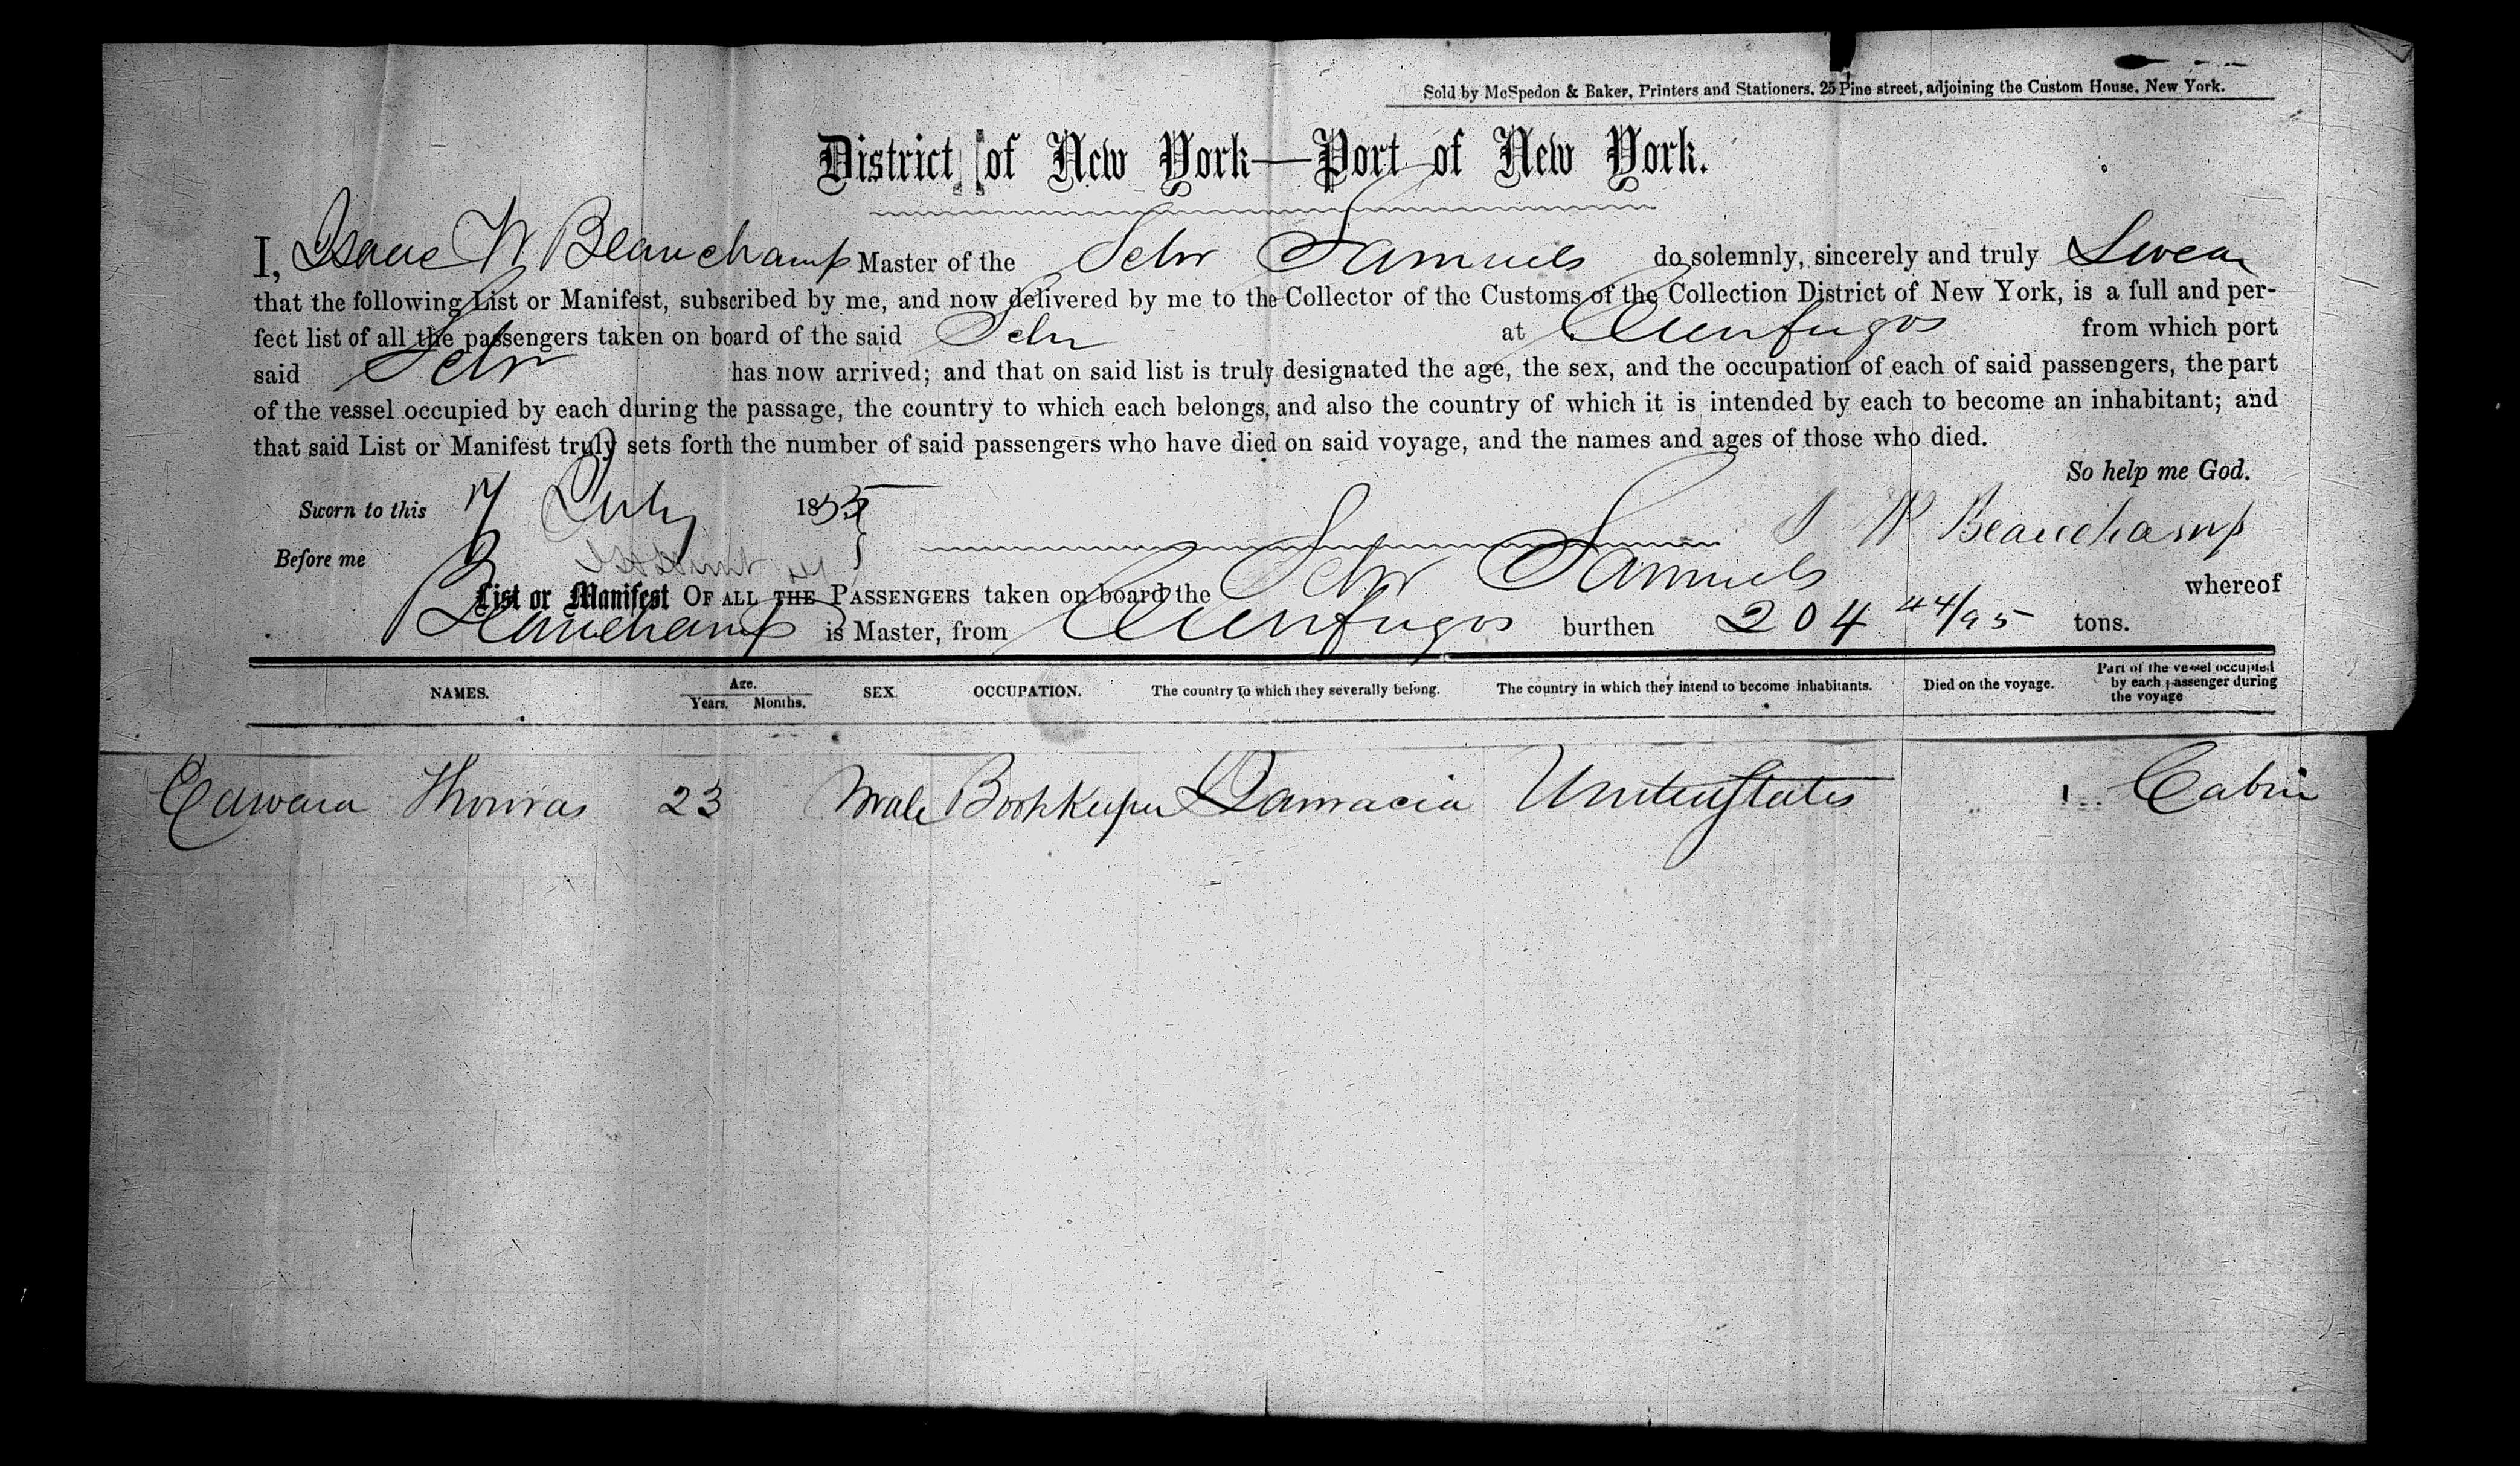 Sold by McSpedon & Baker, Printers and Stationers, 25 Pine street, adjoining the Custom House, New York.
District of New York—Port of New York.
I, Isaac W Beauchamp Master of the Schr S Samuels do solemnly, sincerely and truly Swear
that the following List or Manifest, subscribed by me, and now delivered by me to the Collector of the Customs of the Collection District of New York, is a full and per-
fect list of all the passengers taken on board of the said Schr at Cienfugos from which port
said Schr has now arrived; and that on said list is truly designated the age, the sex, and the occupation of each of said passengers, the part
of the vessel occupied by each during the passage, the country to which each belongs, and also the country of which it is intended by each to become an inhabitant; and
that said List or Manifest truly sets forth the number of said passengers who have died on said voyage, and the names and ages of those who died.
So help me God.
Sworn to this 17 July 1855 I W Beauchamp
Before me
List or Manifest OF ALL THE PASSENGERS taken on board the Schr S Samuels whereof
Beauchamp is Master, from Cienfugos burthen 204 44/95 tons.
NAMES. Age. Years. Months. SEX. OCCUPATION. The country to which they severally belong. The country in which they intend to become inhabitants. Died on the voyage. Part of the vessel occupied by each passenger during the voyage
Edward Thomas 23 Male Bookkeeper Jamacia United States Cabin